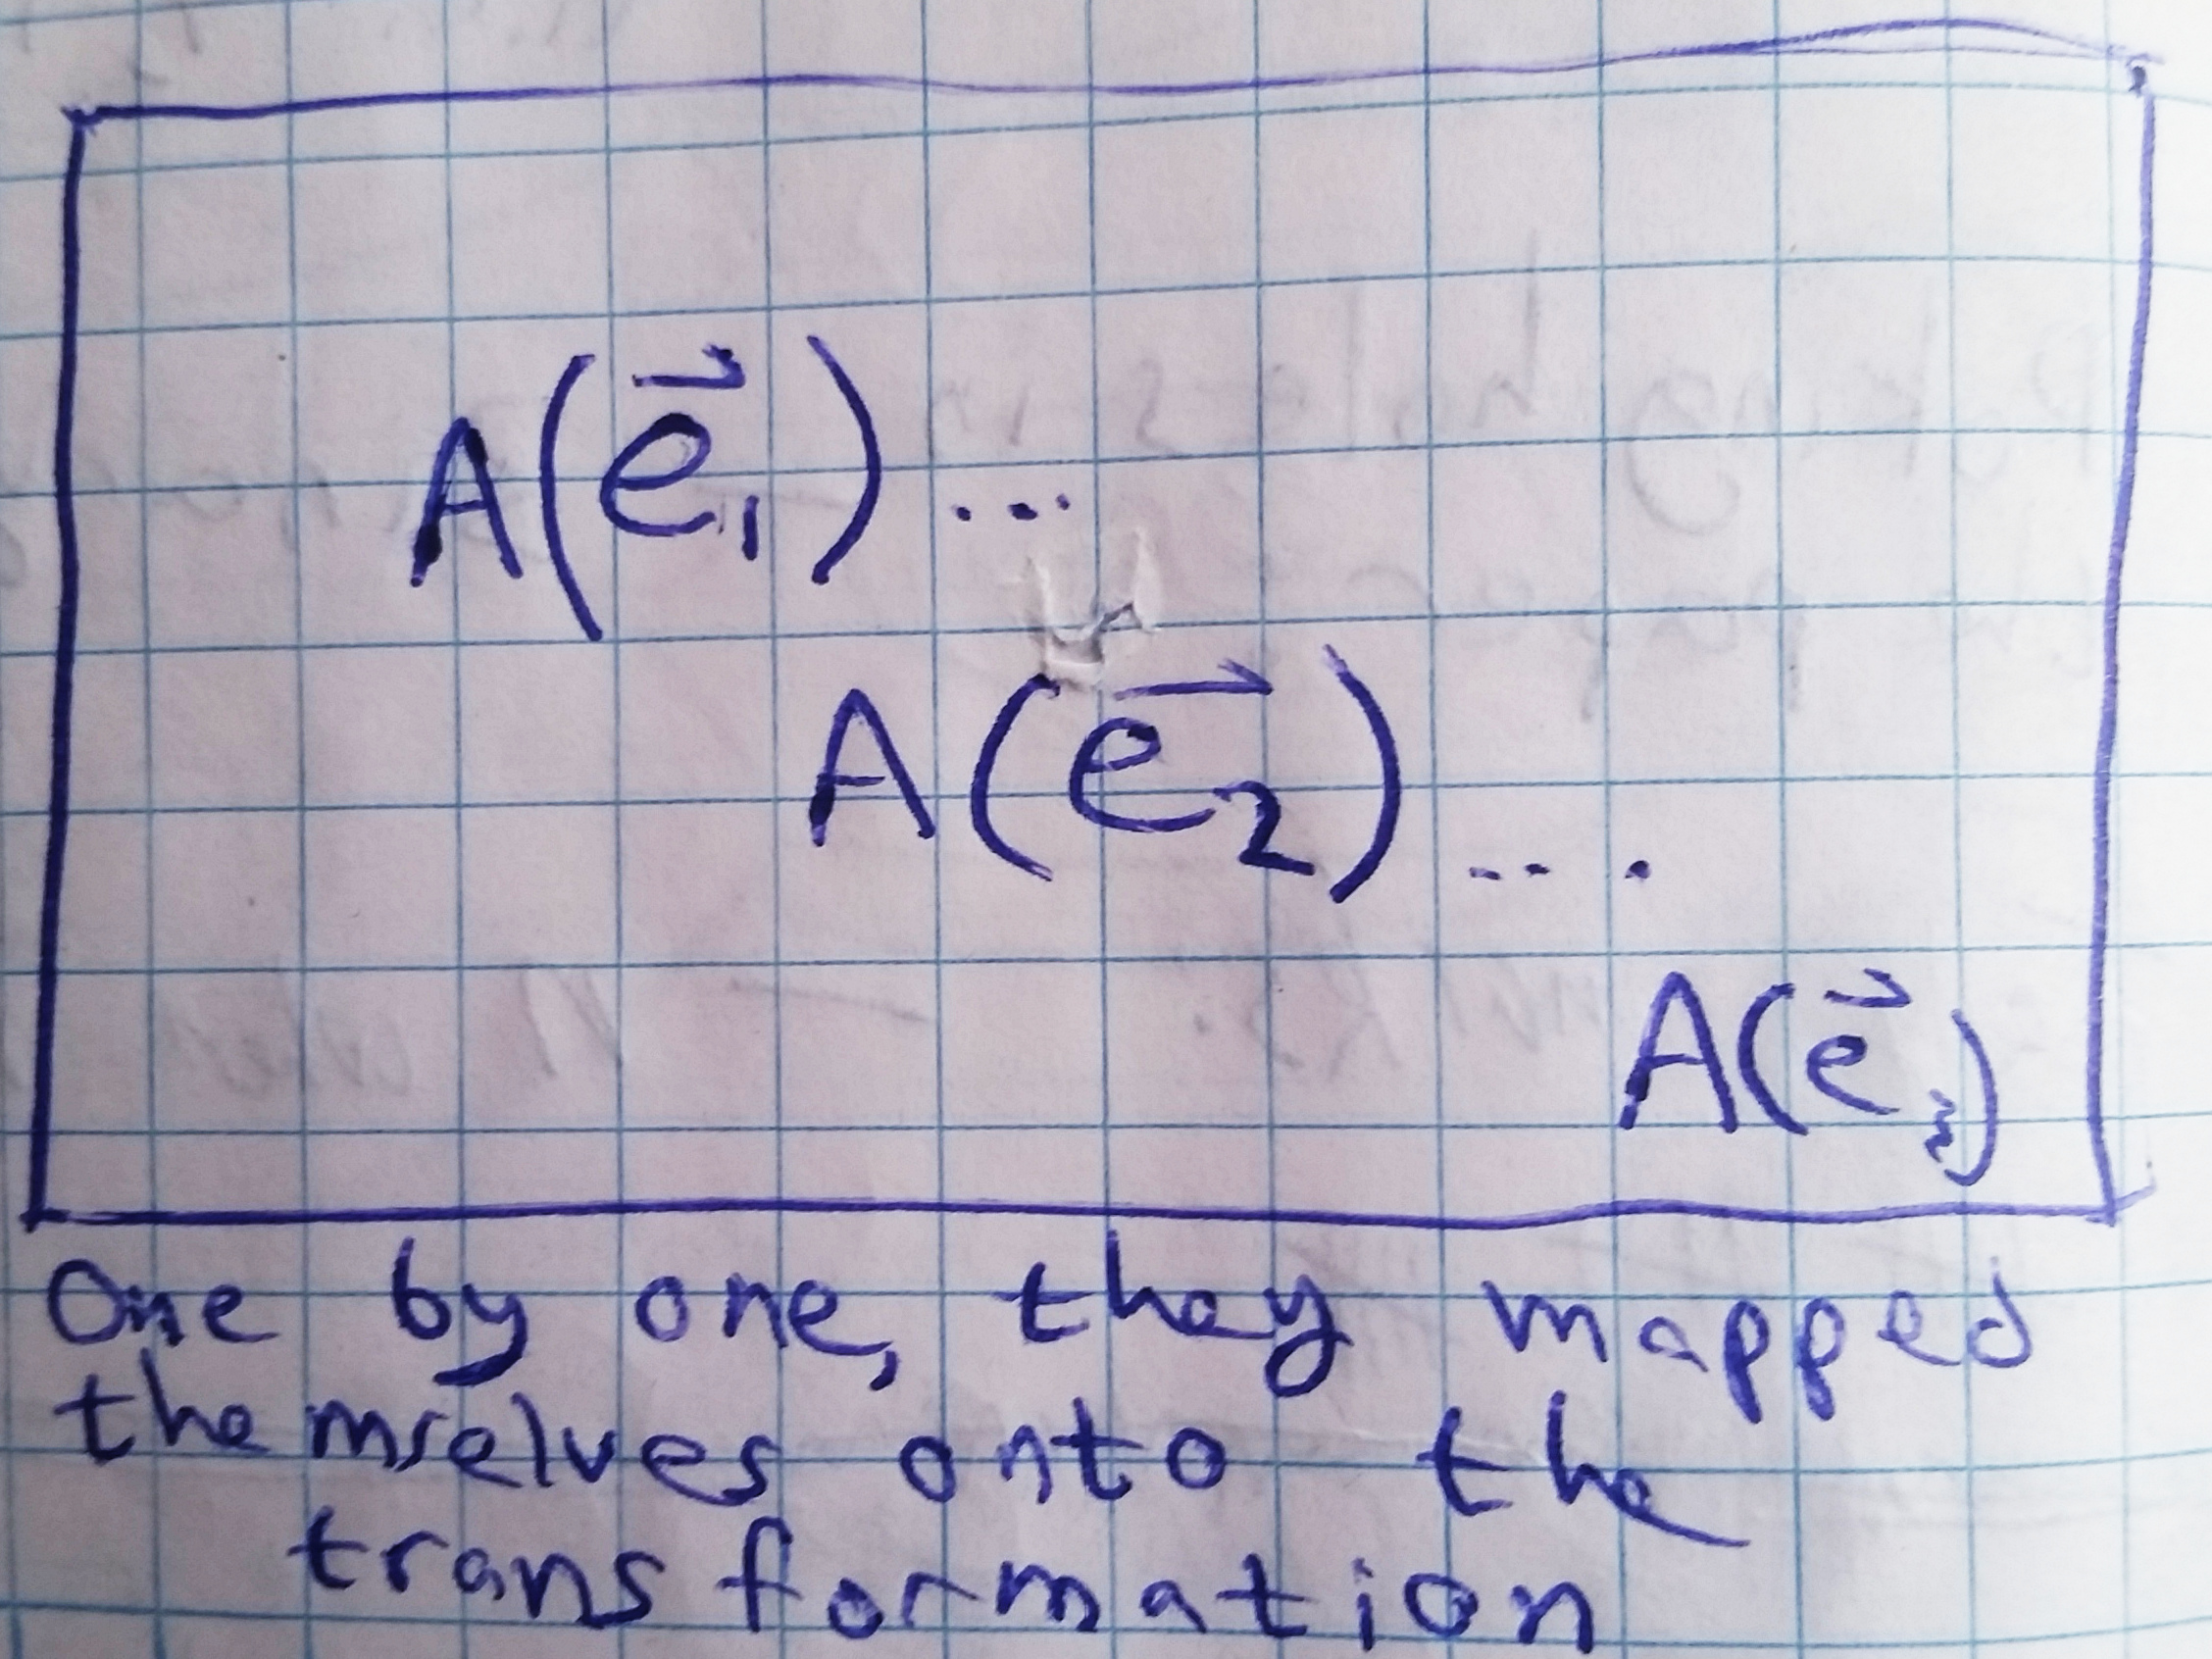 A(e⃗₁)...
A(e⃗₂)....
A(e⃗ᵢ)
One by one, they mapped
themselves onto the
transformation